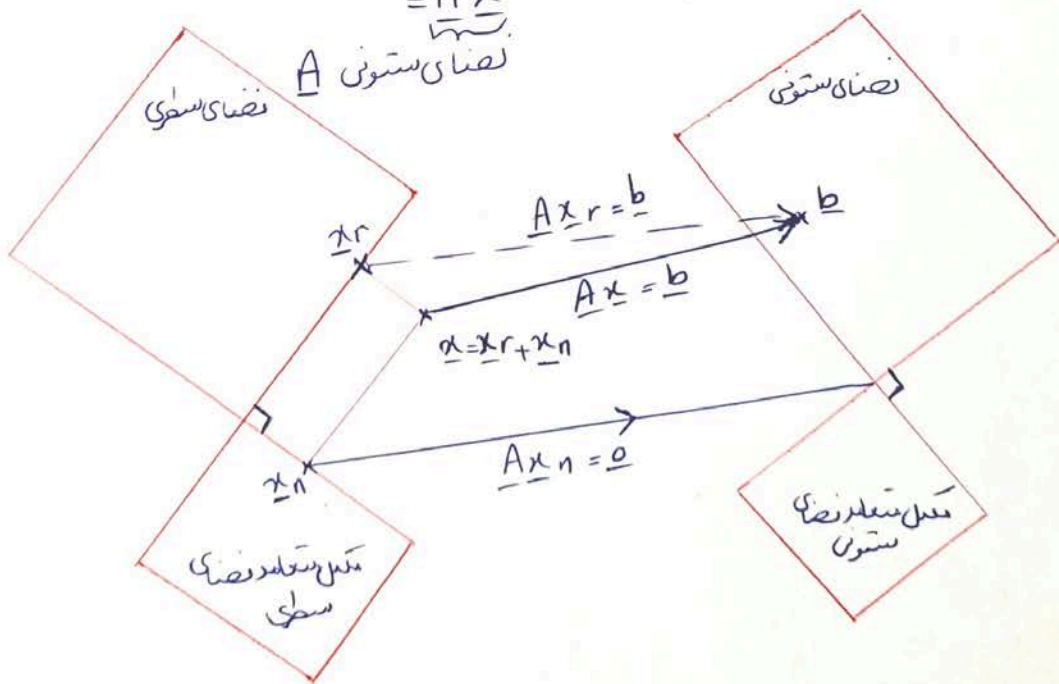 = A x
فضای ستونی A
فضای سطری
فضای ستونی
x r
A x r = b
b
A x = b
x = x r + x n
x n
A x n = 0
مکمل متعامد فضای
سطری
مکمل متعامد فضای
ستونی